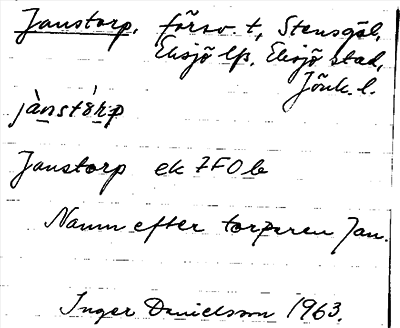 Janstorp, försv. t, Stensgöl,
Eksjö lfs, Eksjö stad,
Jönk. l.
jànstòrp
Janstorp ek 7F0b
Namn efter torparen Jan.
Inger Danielsson 1963.